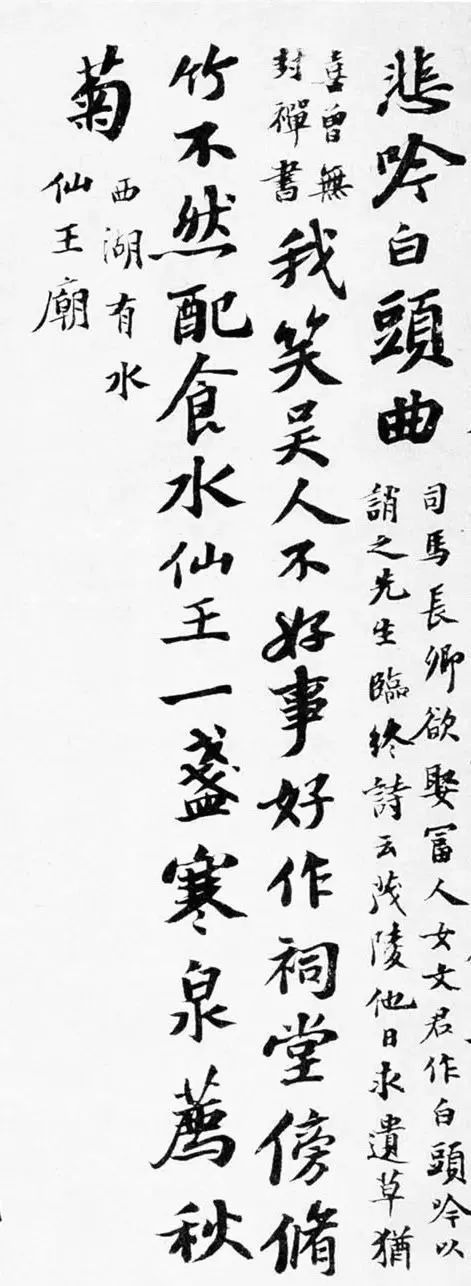 悲吟白頭曲
司馬長卿欲娶富人女文君作白頭吟以
誚之先生臨終詩云茂陵他日求遺草猶
喜曾無
封禪書
我笑吳人不好事好作祠堂傍脩
竹不然配食水仙王一盞寒泉薦秋
菊
西湖有水
仙王廟